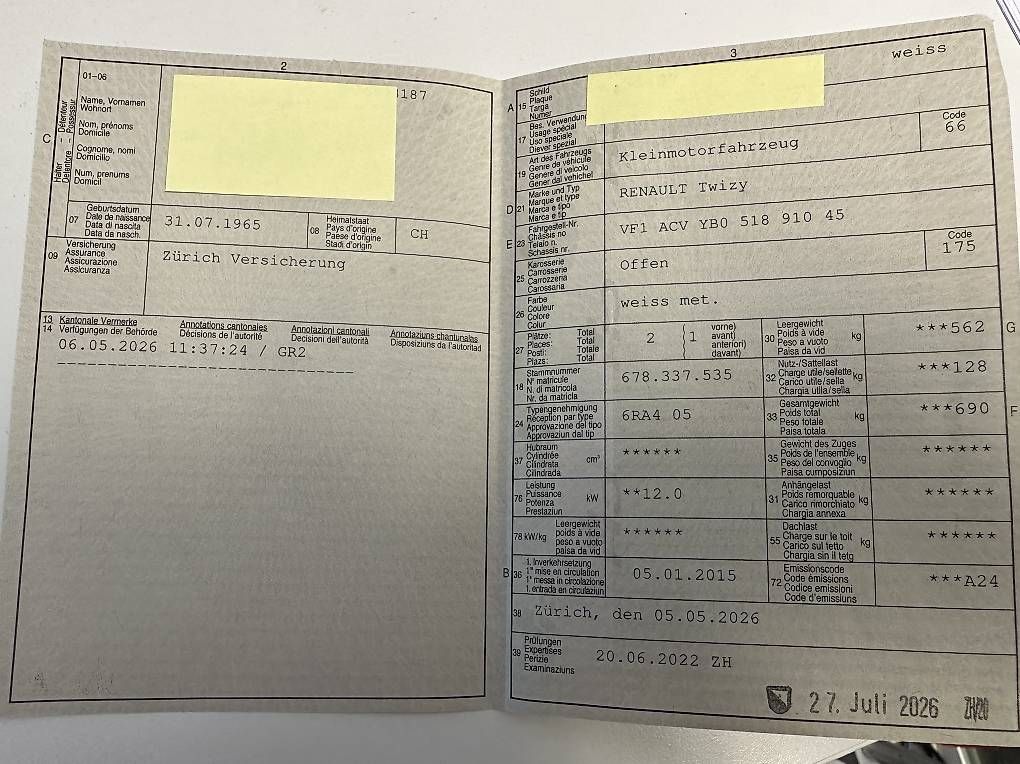 2
01-06
187
Name, Vornamen
Wohnort
Nom, prénoms
Domicile
Cognome, nomi
Domicilio
Num, prenums
Domicil
C
Halter Détenteur
Detentore - Possessur
07
Geburtsdatum
Date de naissance
Data di nascita
Data da nasch.
31.07.1965
08
Heimatstaat
Pays d'origine
Paese d'origine
Stadi d'origin
CH
09
Versicherung
Assurance
Assicurazione
Assicuranza
Zürich Versicherung
13 Kantonale Vermerke
14 Verfügungen der Behörde
Annotations cantonales
Décisions de l'autorité
Annotazioni cantonali
Decisioni dell'autorità
Annotaziuns chantunalas
Disposiziuns da l'autoritad
06.05.2026 11:37:24 / GR2
3
weiss
A 15
Schild
Plaque
Targa
Numer
17
Bes. Verwendung
Usage spécial
Uso speciale
Diever spezial
Code
66
19
Art des Fahrzeugs
Genre de véhicule
Genere di veicolo
Gener dal vehichel
Kleinmotorfahrzeug
D 21
Marke und Typ
Marque et type
Marca e tipo
Marca e tip
RENAULT Twizy
E 23
Fahrgestell-Nr.
Châssis no
Telaio n.
Schassis nr.
VF1 ACV YB0 518 910 45
25
Karosserie
Carrosserie
Carrozzeria
Carossaria
Offen
Code
175
26
Farbe
Couleur
Colore
Colur
weiss met.
27
Plätze: Total
Places: Total
Posti: Totale
Plazs: Total
2 (1
vorne)
avant)
anteriori)
davant)
30
Leergewicht
Poids à vide
Peso a vuoto
Paisa da vid
kg
***562
G
18
Stammnummer
N° matricule
N. di matricola
Nr. da matricla
678.337.535
32
Nutz-/Sattellast
Charge utile/sellette
Carico utile/sella
Chargia utila/sella
kg
***128
24
Typengenehmigung
Réception par type
Approvazione del tipo
Approvaziun dal tip
6RA4 05
33
Gesamtgewicht
Poids total
Peso totale
Paisa totala
kg
***690
F
37
Hubraum
Cylindrée
Cilindrata
Cilindrada
cm³
******
35
Gewicht des Zuges
Poids de l'ensemble
Peso del convoglio
Paisa cumposiziun
kg
******
76
Leistung
Puissance
Potenza
Prestaziun
kW
**12.0
31
Anhängelast
Poids remorquable
Carico rimorchiato
Chargia annexa
kg
******
78 kW/kg
Leergewicht
poids à vide
peso a vuoto
paisa da vid
******
55
Dachlast
Charge sur le toit
Carico sul tetto
Chargia sin il tetg
kg
******
B 36
1. Inverkehrsetzung
1re mise en circulation
1a messa in circolazione
1. entrada en circulaziun
05.01.2015
72
Emissionscode
Code émissions
Codice emissioni
Code d'emissiuns
***A24
38
Zürich, den 05.05.2026
39
Prüfungen
Expertises
Perizie
Examinaziuns
20.06.2022 ZH
27. Juli 2026